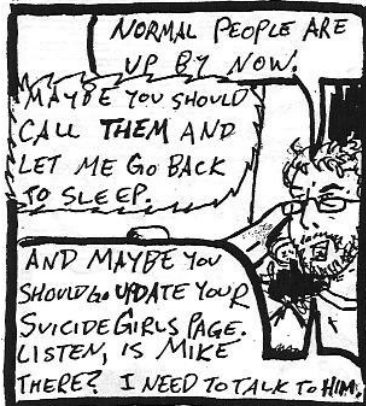 NORMAL PEOPLE ARE
UP BY NOW.
MAYBE YOU SHOULD
CALL THEM AND
LET ME GO BACK
TO SLEEP.
AND MAYBE YOU
SHOULD GO UPDATE YOUR
SUICIDEGIRLS PAGE.
LISTEN, IS MIKE
THERE? I NEED TO TALK TO HIM.